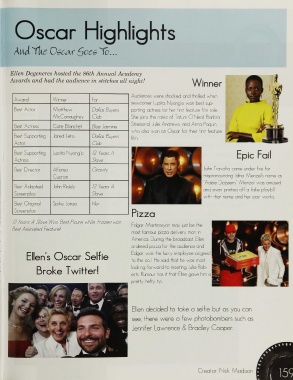 Oscar Highlights
And The Oscar Goes To...
Ellen Degeneres hosted the 86th Annual Academy
Awards and had the audience in stitches all night!
Award Winner For
Best Actor Matthew McConaughey Dallas Buyers Club
Best Actress Cate Blanchett Blue Jasmine
Best Supporting Actor Jared Leto Dallas Buyers Club
Best Supporting Actress Lupita Nyong'o 12 Years A Slave
Best Director Alfonso Cuaron Gravity
Best Adapted Screenplay John Ridley 12 Years A Slave
Best Original Screenplay Her
12 Years A Slave Won Best Picture while Frozen won
Best Animated Feature!
Winner
Audiences were shocked and thrilled when
newcomer Lupita Nyong'o won best sup-
porting actress for her first feature film role.
She joins the ranks of Tatum O'Neal, Barbra
Streisand, Julie Andrews, and Anna Paquin,
who also won an Oscar for their first feature
film.
Epic Fail
John Travolta came under fire for
mispronouncing Idina Menzel's name as
Pizza
Edgar Martirosyan may just be the
most famous pizza delivery man in
America. During the broadcast, Ellen
ordered pizza for the audience and
Edgar was the lucky employee assigned
to the job. He said that he was most
looking forward to meeting Julia Rob-
erts. Rumour has it that Ellen gave him a
pretty hefty tip.
Ellen's Oscar Selfie
Broke Twitter!
Ellen decided to take a selfie but as you can
see, there were a few photobombers such as
Jennifer Lawrence & Bradley Cooper.
Creator: Nick Madison
159